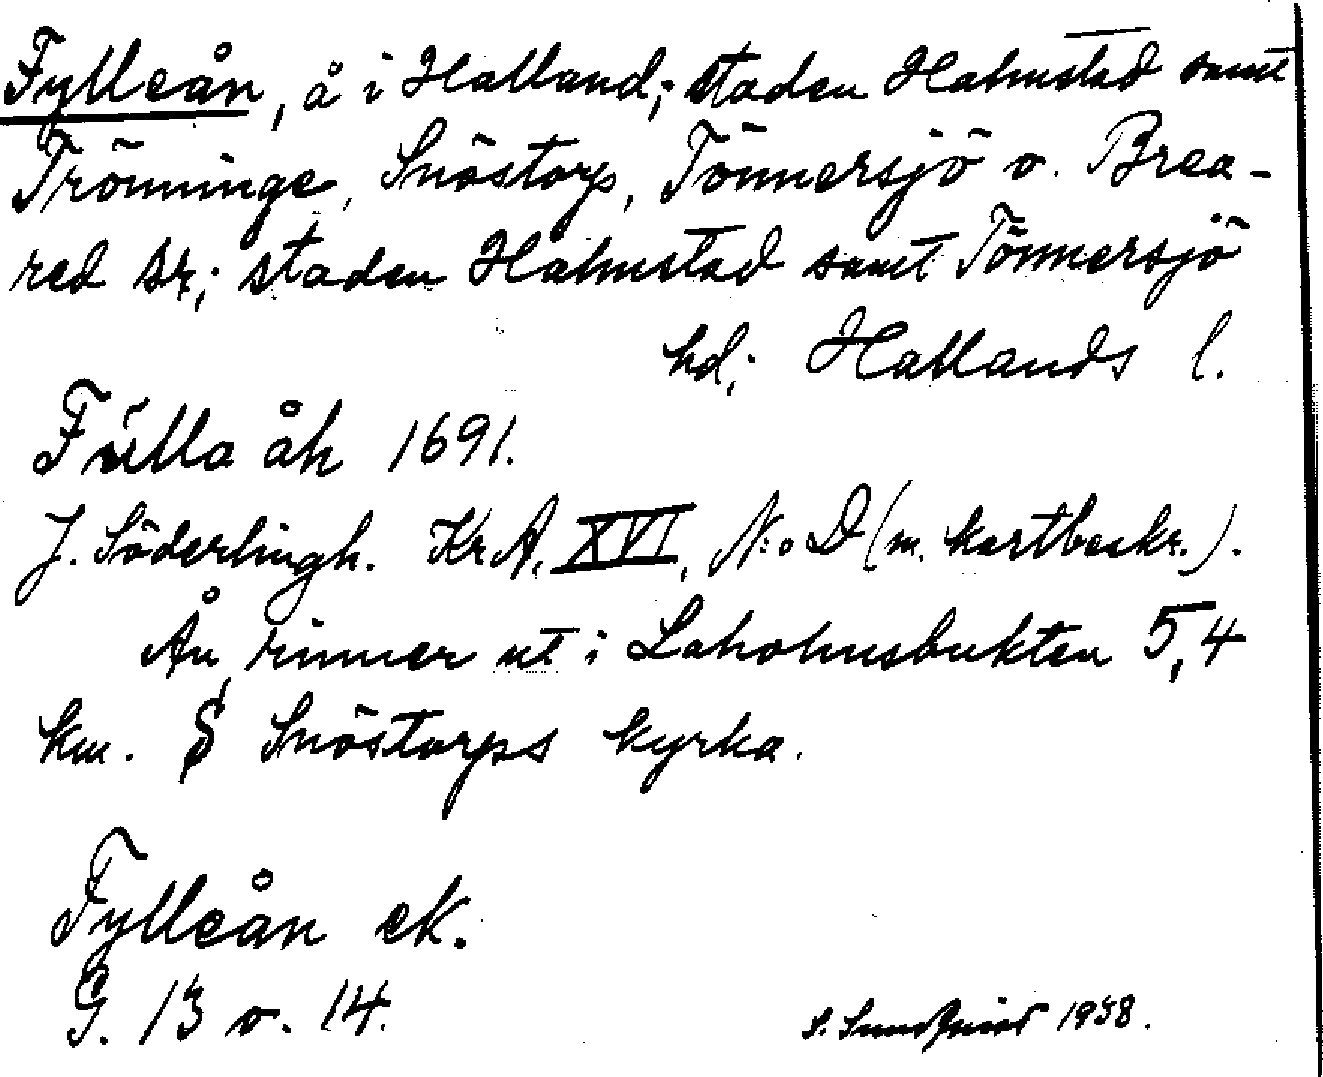 Fylleån, å i Halland; staden Halmstad samt
Trönninge, Snöstorp, Tönnersjö o. Brea-
red sr; staden Halmstad samt Tönnersjö
hd; Hallands l.
Fülla åh 1691.
J. Söderlingh. Kr.A. XVI, N:o D (m. kartbeskr.).
Ån rinner ut i Laholmsbukten 5,4
km. S Snöstorps kyrka.
Fylleån ek.
G. 13 o. 14.
S. Sundqvist 1938.